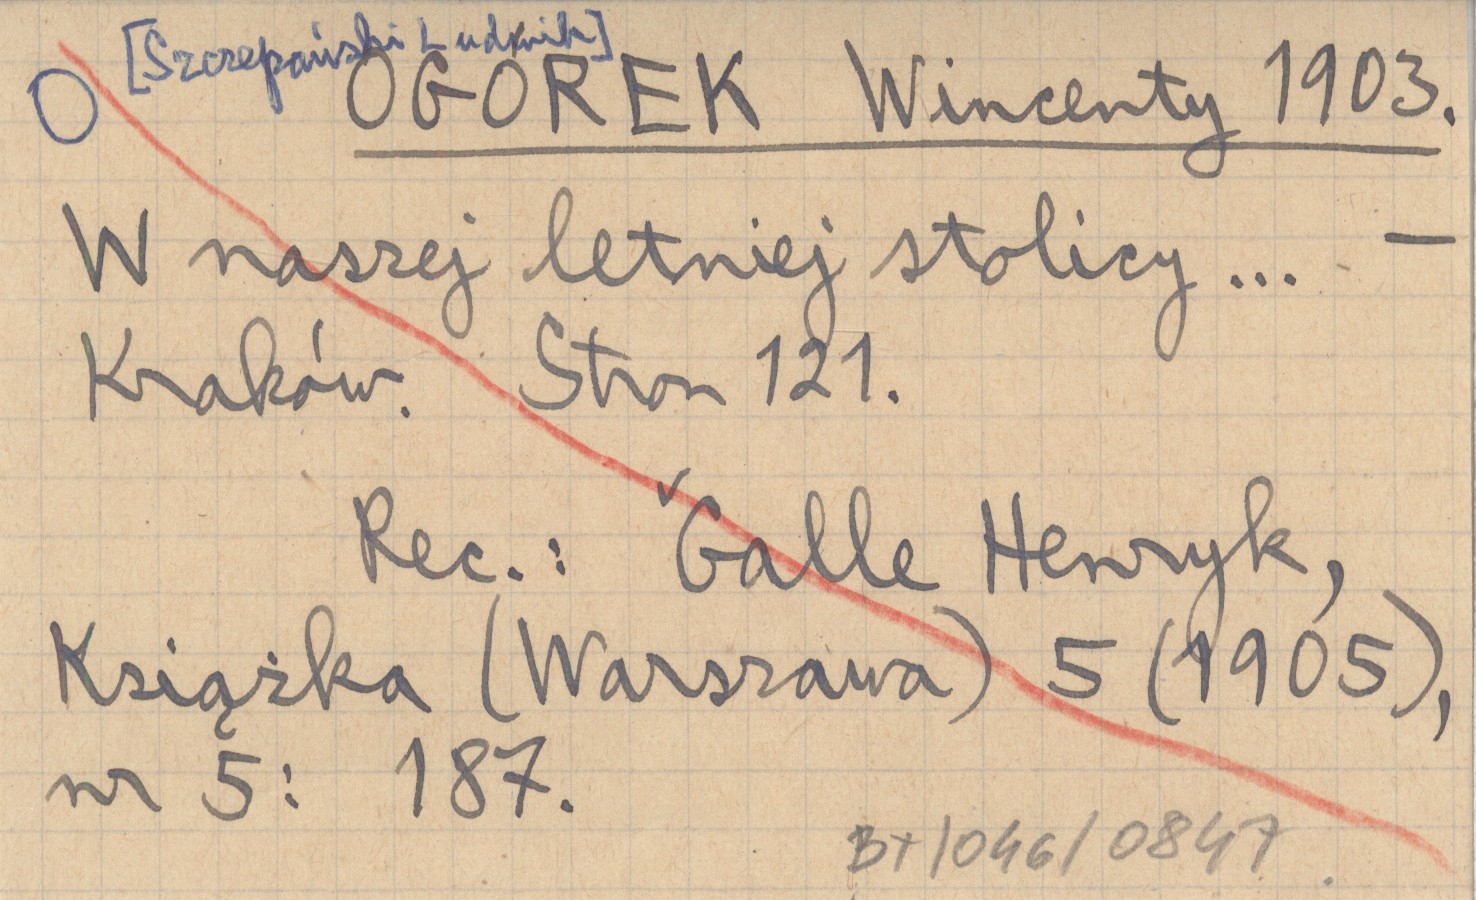 [Szczepański Ludwik]
O OGÓREK Wincenty 1903.
W naszej letniej stolicy... –
Kraków. Stron 121.
Rec.: Galle Henryk,
Książka (Warszawa) 5 (1905),
nr 5: 187.
Bt/046/0847